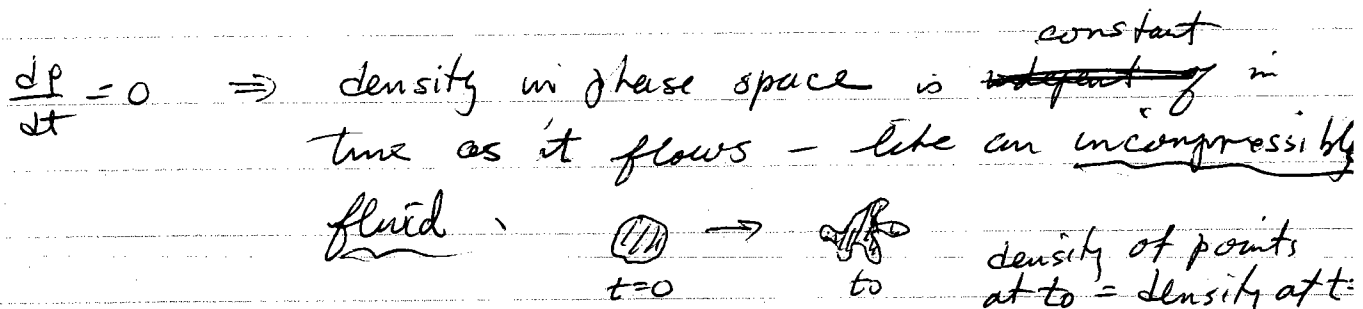 constant
dρ/dt = 0 ⇒ density in phase space is in
time as it flows - like an incompressibl
fluid.
t=0 t0 density of points
at t0 = density at t=